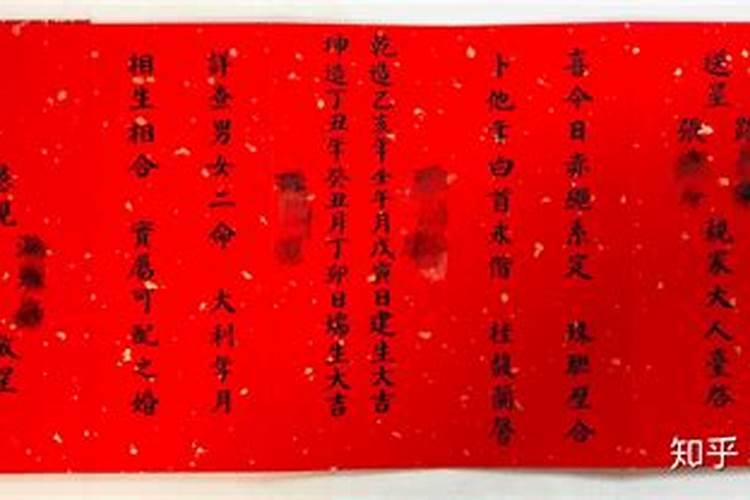 送呈
張 親家大人臺啓
喜今日赤繩系定 珠聯璧合
卜他年白首永偕 桂馥蘭馨
乾造乙亥年壬午月戊寅日建生大吉
坤造丁丑年癸丑月丁卯日瑞生大吉
詳查男女二命 大利年月
相生相合 實屬可配之婚
敬呈
知乎